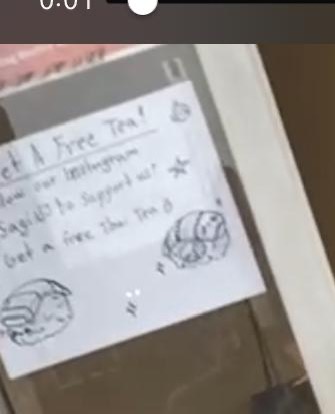 0:01
et A Free Tea!
low our Instagram
to support us!
Get a free Thai Tea